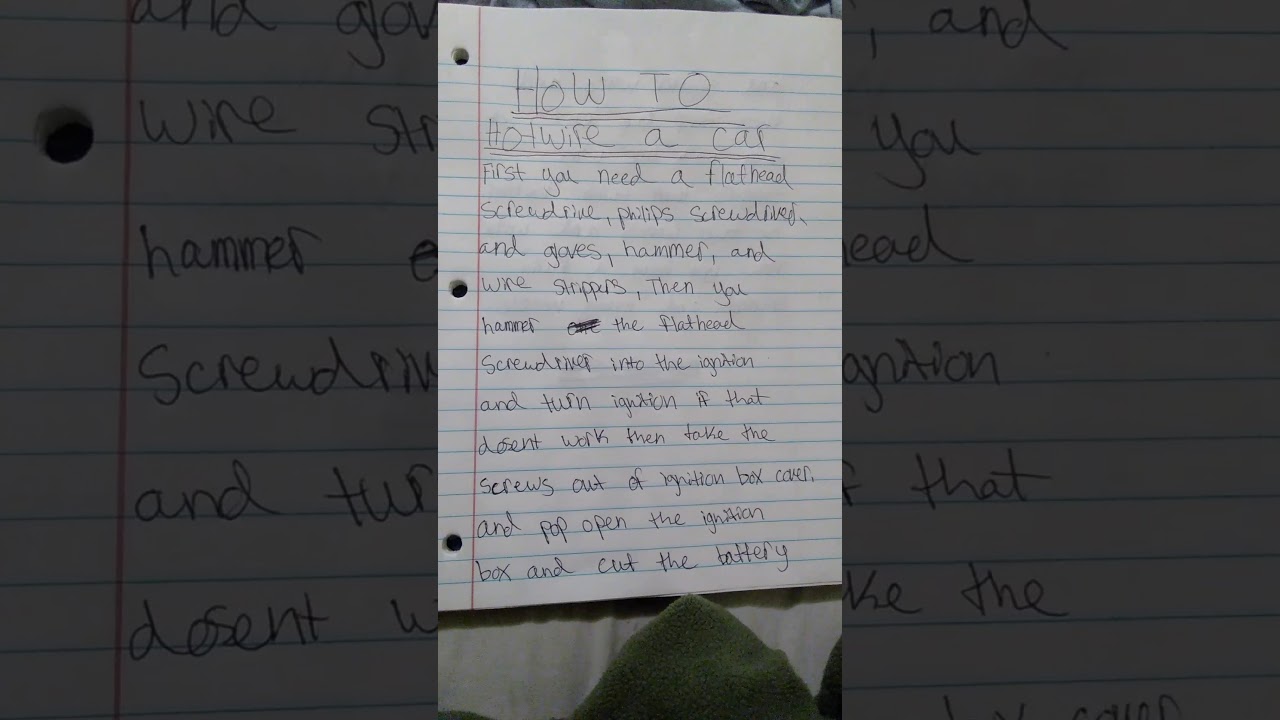 HOW TO
Hotwire a car
First you need a flathead
Screwdrive, philips screwdriver,
and gloves, hammer, and
wire strippers, Then you
hammer the flathead
Screwdriver into the ignition
and turn ignition if that
dosent work then take the
screws out of ignition box cover.
and pop open the ignition
box and cut the battery